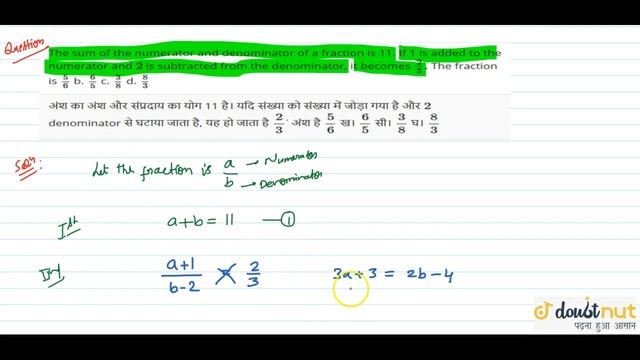 Question
The sum of the numerator and denominator of a fraction is 11. If 1 is added to the
numerator and 2 is subtracted from the denominator, it becomes 2/3. The fraction
is 5/6 b. 6/5 c. 3/8 d. 8/3
अंश का अंश और संप्रदाय का योग 11 है। यदि संख्या को संख्या में जोड़ा गया है और 2
denominator से घटाया जाता है, यह हो जाता है 2/3. अंश है 5/6 ख। 6/5 सी। 3/8 घ। 8/3
Soln:
Let the fraction is a/b → Numerator
→ Denominator
Ist a+b = 11 — ①
IInd (a+1)/(b-2) = 2/3 3a+3 = 2b-4
doubtnut
पढ़ना हुआ आसान